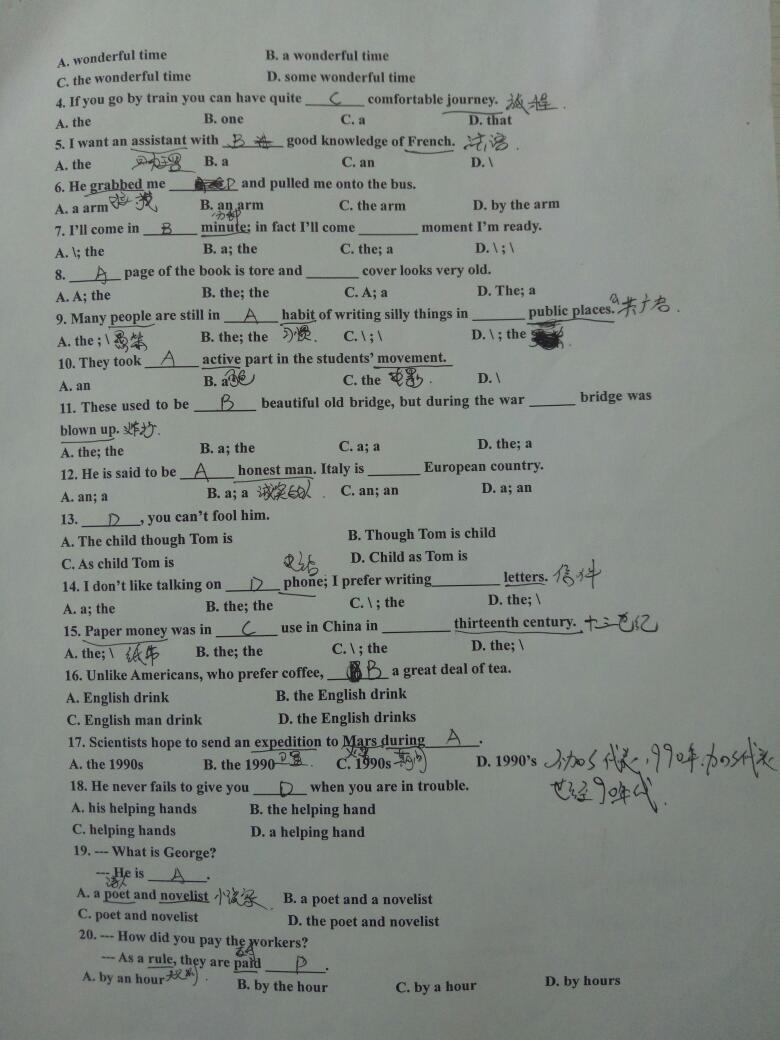 A. wonderful time B. a wonderful time
C. the wonderful time D. some wonderful time
4. If you go by train you can have quite C comfortable journey. 旅程.
A. the B. one C. a D. that
5. I want an assistant with B good knowledge of French. 法语.
A. the B. a C. an D. \
6. He grabbed me D and pulled me onto the bus.
A. a arm B. an arm C. the arm D. by the arm
分钟
7. I'll come in B minute; in fact I'll come ______ moment I'm ready.
A. \; the B. a; the C. the; a D. \ ; \
8. A page of the book is tore and ______ cover looks very old.
A. A; the B. the; the C. A; a D. The; a
9. Many people are still in A habit of writing silly things in ______ public places. 共广告.
A. the ; \ 愚笨 B. the; the 习惯. C. \ ; \ D. \ ; the
10. They took A active part in the students' movement.
A. an B. a C. the 电影. D. \
11. These used to be B beautiful old bridge, but during the war ______ bridge was
blown up. 炸抄.
A. the; the B. a; the C. a; a D. the; a
12. He is said to be A honest man. Italy is ______ European country.
A. an; a B. a; a 诚实的人. C. an; an D. a; an
13. D, you can't fool him.
A. The child though Tom is B. Though Tom is child
C. As child Tom is D. Child as Tom is
电话
14. I don't like talking on D phone; I prefer writing ______ letters. 信件
A. a; the B. the; the C. \ ; the D. the; \
15. Paper money was in C use in China in ______ thirteenth century. 十三世纪
A. the; \ 纸币 B. the; the C. \ ; the D. the; \
16. Unlike Americans, who prefer coffee, B a great deal of tea.
A. English drink B. the English drink
C. English man drink D. the English drinks
17. Scientists hope to send an expedition to Mars during A.
A. the 1990s B. the 1990 卫星 C. 1990s 期间 D. 1990's 不加s代表, 990年.加s代表
世纪90年代.
18. He never fails to give you D when you are in trouble.
A. his helping hands B. the helping hand
C. helping hands D. a helping hand
19. --- What is George?
--- He is A.
诗人
A. a poet and novelist 小说家 B. a poet and a novelist
C. poet and novelist D. the poet and novelist
20. --- How did you pay the workers?
--- As a rule, they are paid D.
A. by an hour 规则. B. by the hour C. by a hour D. by hours